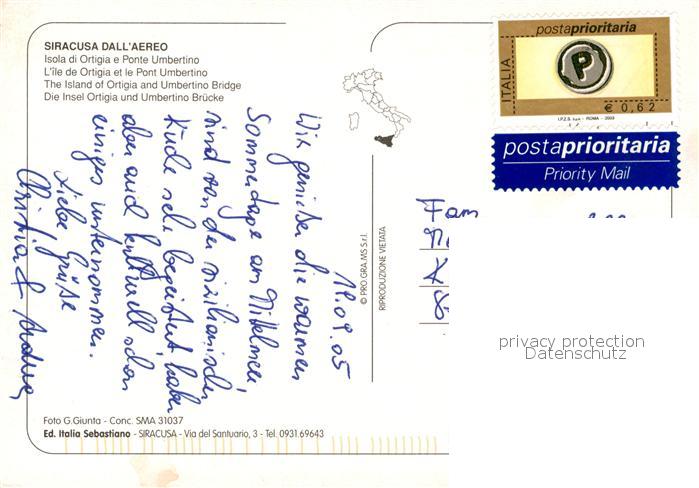 SIRACUSA DALL'AEREO
Isola di Ortigia e Ponte Umbertino
L'île de Ortigia et le Pont Umbertino
The Island of Ortigia and Umbertino Bridge
Die Insel Ortigia und Umbertino Brücke
19.09.05
Wir genießen die warmen
Sommertage am Mittelmeer,
sind von der sizilianischen
Küche sehr begeistert, haben
aber auch kulturell schon
einiges unternommen.
Liebe Grüße
Christian &
© PRO.GRA.MS S.r.l.
RIPRODUZIONE VIETATA
ITALIA
postaprioritaria
P
€ 0,62
I.P.Z.S. S.p.A. - ROMA - 2003
postaprioritaria
Priority Mail
Fam
privacy protection
Datenschutz
Foto G.Giunta - Conc. SMA 31037
Ed. Italia Sebastiano - SIRACUSA - Via del Santuario, 3 - Tel. 0931.69643